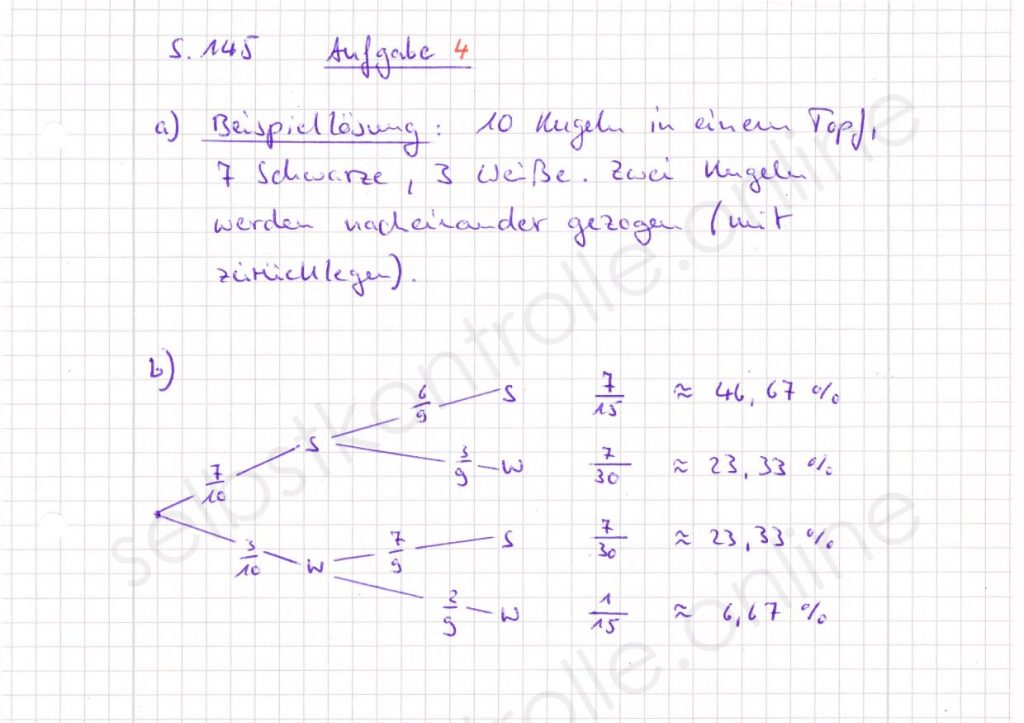 S. 145 Aufgabe 4
a) Beispiellösung: 10 Kugeln in einem Topf,
7 Schwarze, 3 Weiße. Zwei Kugeln
werden nacheinander gezogen (mit
zurücklegen).
b)
6/9 S 7/15 ≈ 46,67 %
S
3/9 W 7/30 ≈ 23,33 %
7/10
7/9 S 7/30 ≈ 23,33 %
3/10 W
2/9 W 1/15 ≈ 6,67 %
selbstkontrolle.online
selbstkontrolle.online